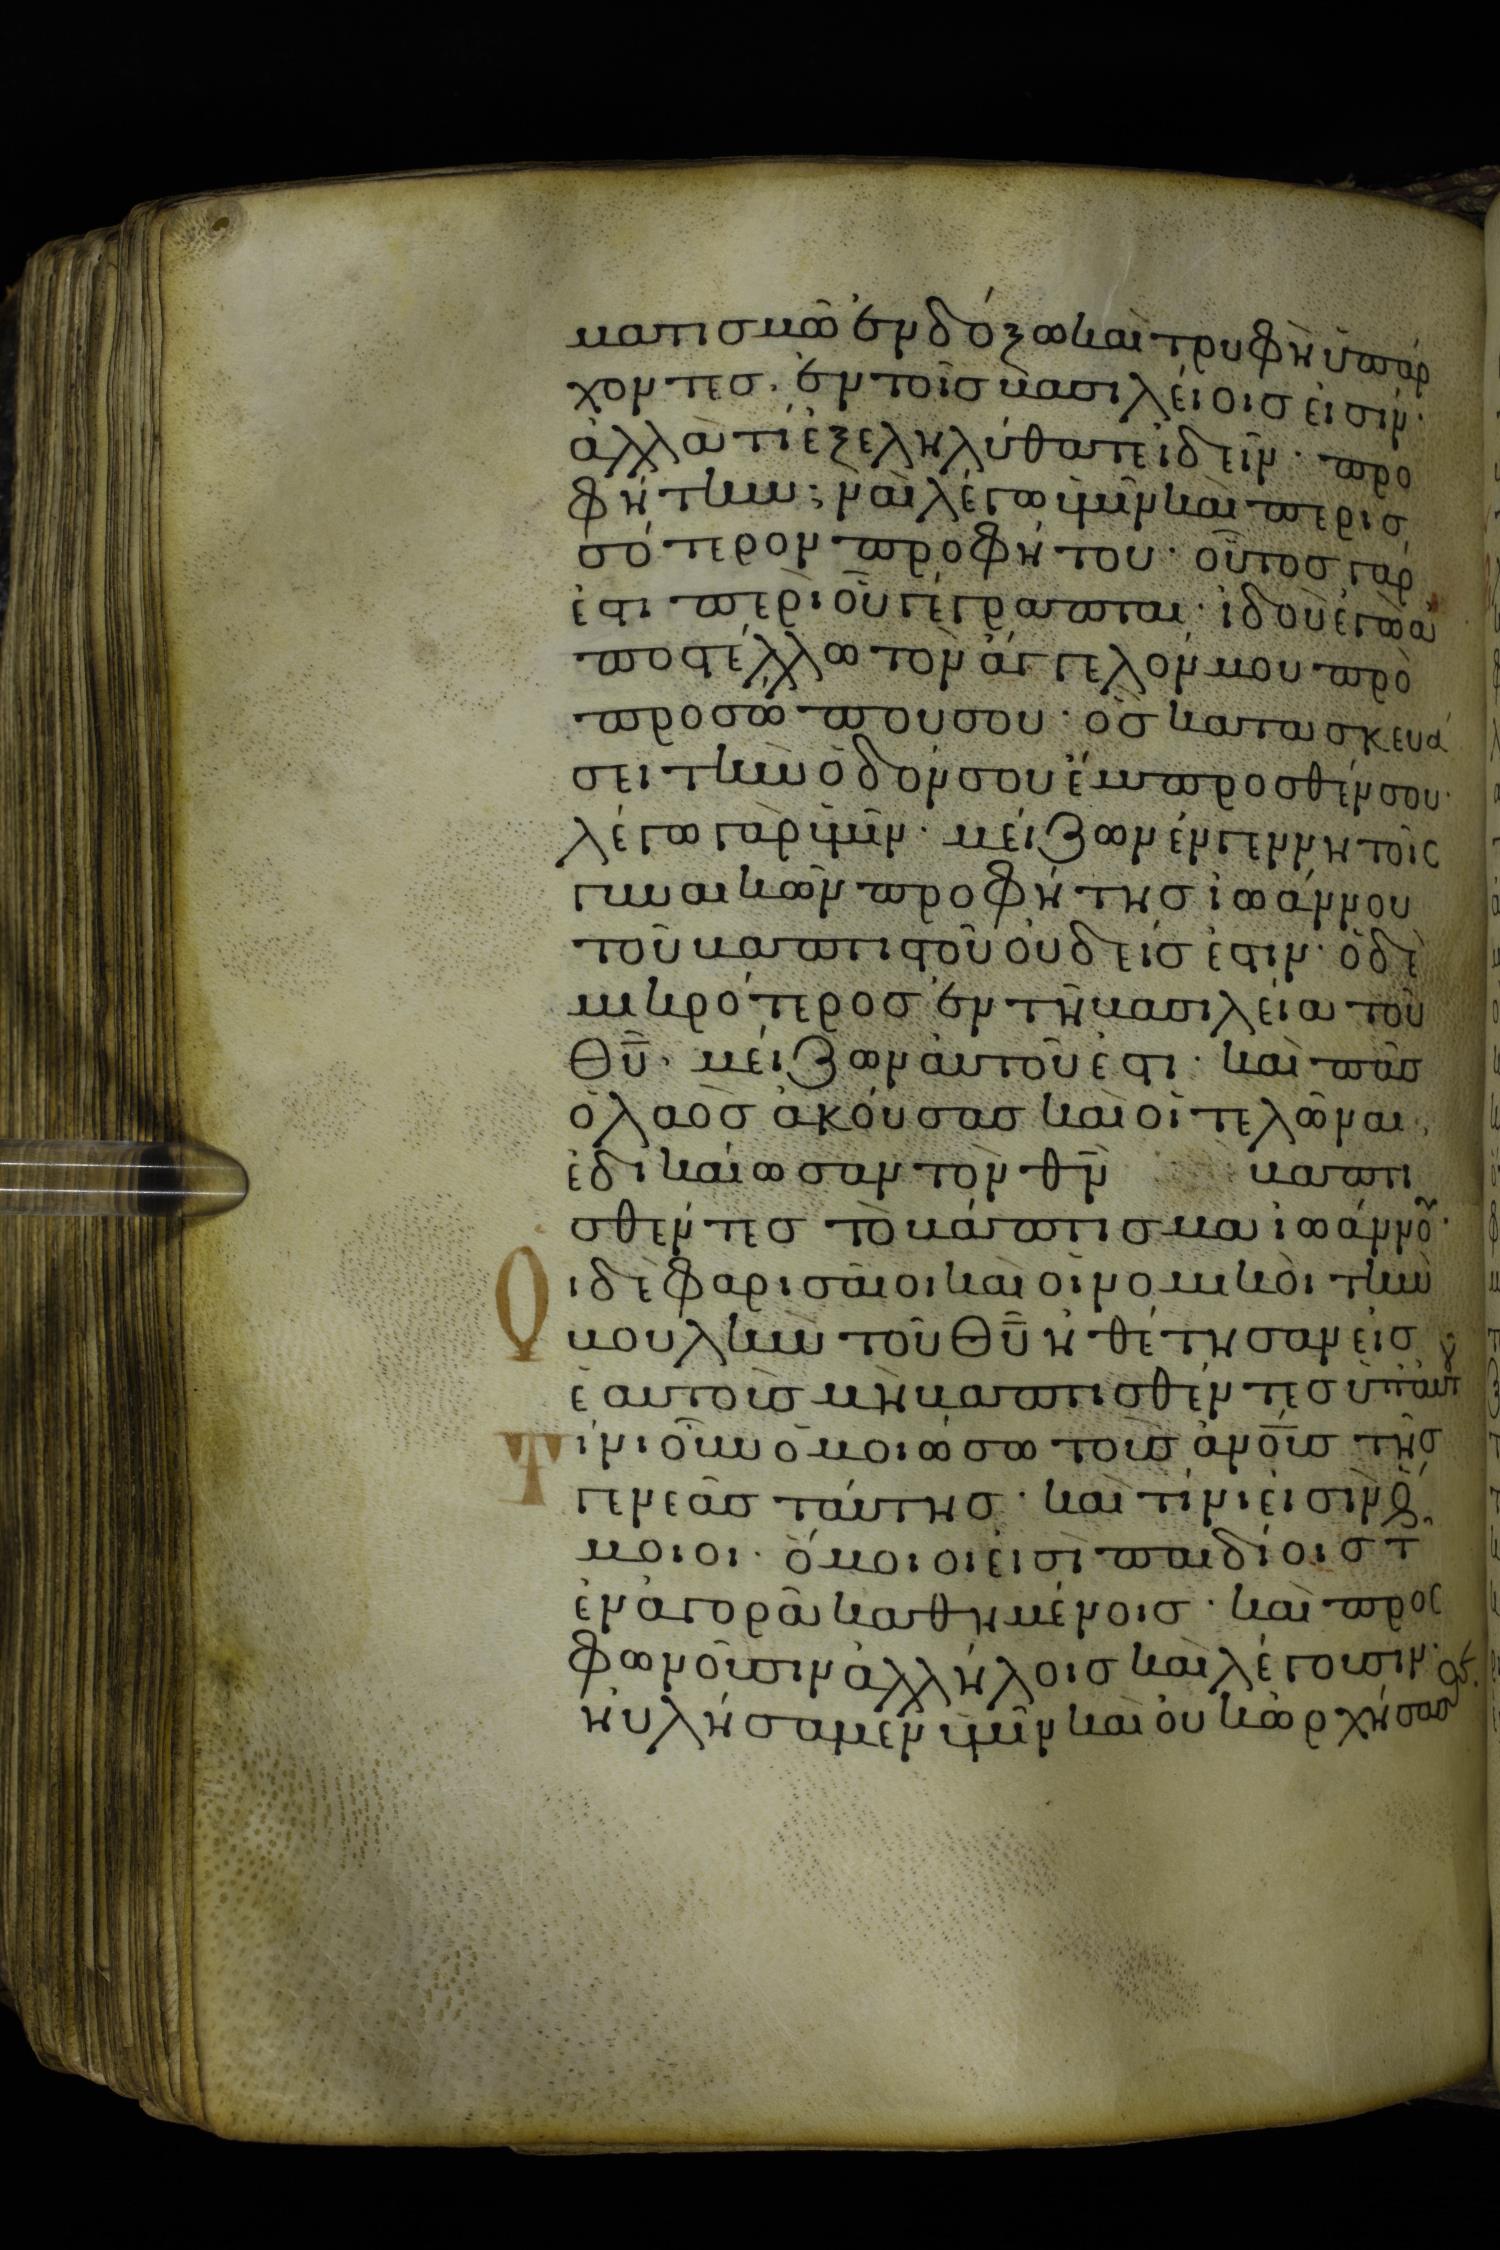 ματισμῶ ἐνδόξω καὶ τρυφῆ ὑπάρ
χοντες· ἐν τοῖς βασιλείοις εἰσίν·
ἀλλὰ τί ἐξεληλύθατε ἰδεῖν· προ
φήτην; ναὶ λέγω ὑμῖν καὶ περισ
σότερον προφήτου· οὗτος γάρ
ἐστι περὶ οὗ γέγραπται· ἰδοὺ ἐγὼ ἀ
ποστέλλω τὸν ἄγγελόν μου πρὸ
προσώπου σου· ὃς κατασκευά
σει τὴν ὁδόν σου ἔμπροσθέν σου·
λέγω γὰρ ὑμῖν· μείζων ἐν γεννητοῖς
γυναικῶν προφήτης ἰωάννου
τοῦ βαπτιστοῦ οὐδείς ἐστιν· ὁ δὲ
μικρότερος ἐν τῆ βασιλεία τοῦ
θῦ· μείζων αὐτοῦ ἐστι· καὶ πᾶς
ὁ λαὸς ἀκούσας καὶ οἱ τελῶναι,
ἐδικαίωσαν τὸν θν βαπτι
σθέντες τὸ βάπτισμα ἰωάννου·
Οἱ δὲ φαρισαῖοι καὶ οἱ νομικοὶ τὴν
βουλὴν τοῦ θῦ ἠθέτησαν εἰς
ἑαυτοὺς μὴ βαπτισθέντες ὑπ' αὐτοῦ
Τίνι οὖν ὁμοιώσω τοὺς ἀνους τῆς
γενεᾶς ταύτης· καὶ τίνι εἰσὶν ὅ
μοιοι· ὅμοιοι εἰσὶ παιδίοις τ
ἐν ἀγορᾶ καθημένοις· καὶ προς
φωνοῦσιν ἀλλήλοις καὶ λέγουσιν·
ηὐλήσαμεν ὑμῖν καὶ οὐκ ὠρχήσασθε·